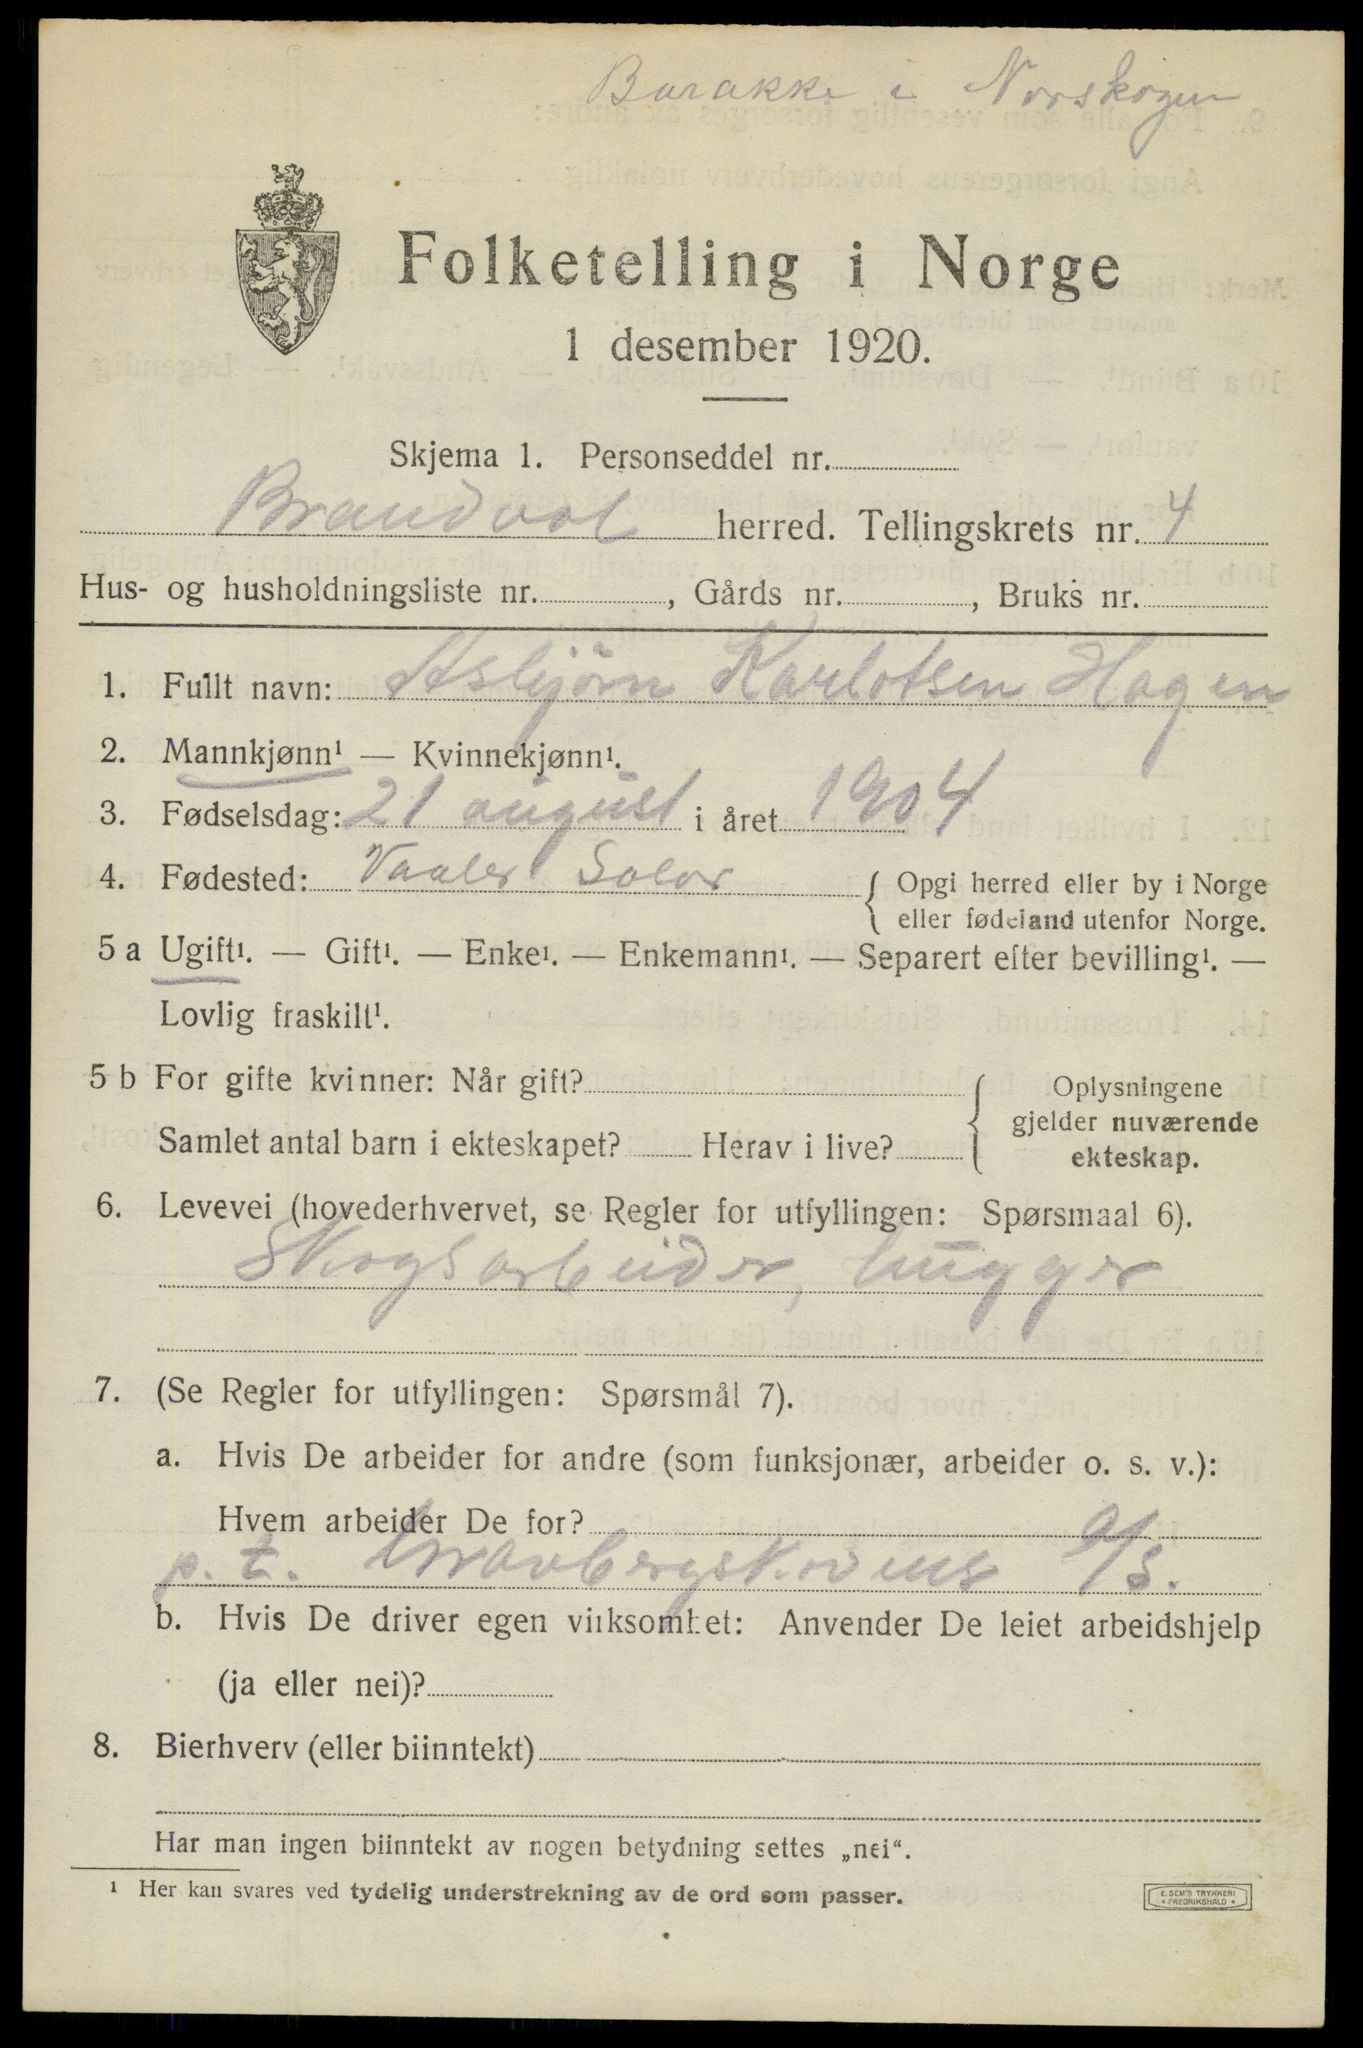 Barakke i Norskogen
Folketelling i Norge
1 desember 1920.
Skjema 1. Personseddel nr.
Brandvol herred. Tellingskrets nr. 4
Hus- og husholdningsliste nr. , Gårds nr. , Bruks nr.
1. Fullt navn: Asbjörn Karlotsen Hagen
2. Mannkjønn¹ — Kvinnekjønn¹.
3. Fødselsdag: 21 august i året 1904
4. Fødested: Vaaler Solør { Opgi herred eller by i Norge
eller fødeland utenfor Norge.
5 a Ugift¹. — Gift¹. — Enke¹. — Enkemann¹. — Separert efter bevilling¹. —
Lovlig fraskilt¹.
5 b For gifte kvinner: Når gift?
Samlet antal barn i ekteskapet? Herav i live?
{ Oplysningene
gjelder nuværende
ekteskap.
6. Levevei (hovederhvervet, se Regler for utfyllingen: Spørsmaal 6).
Skogsarbeider, hugger
7. (Se Regler for utfyllingen: Spørsmål 7).
a. Hvis De arbeider for andre (som funksjonær, arbeider o. s. v.):
Hvem arbeider De for?
p. t. Gravbergskovens A/S.
b. Hvis De driver egen virksomhet: Anvender De leiet arbeidshjelp
(ja eller nei)?
8. Bierhverv (eller biinntekt)
Har man ingen biinntekt av nogen betydning settes „nei“.
¹ Her kan svares ved tydelig understrekning av de ord som passer.
E. SEM'S TRYKKERI
FREDRIKSHALD